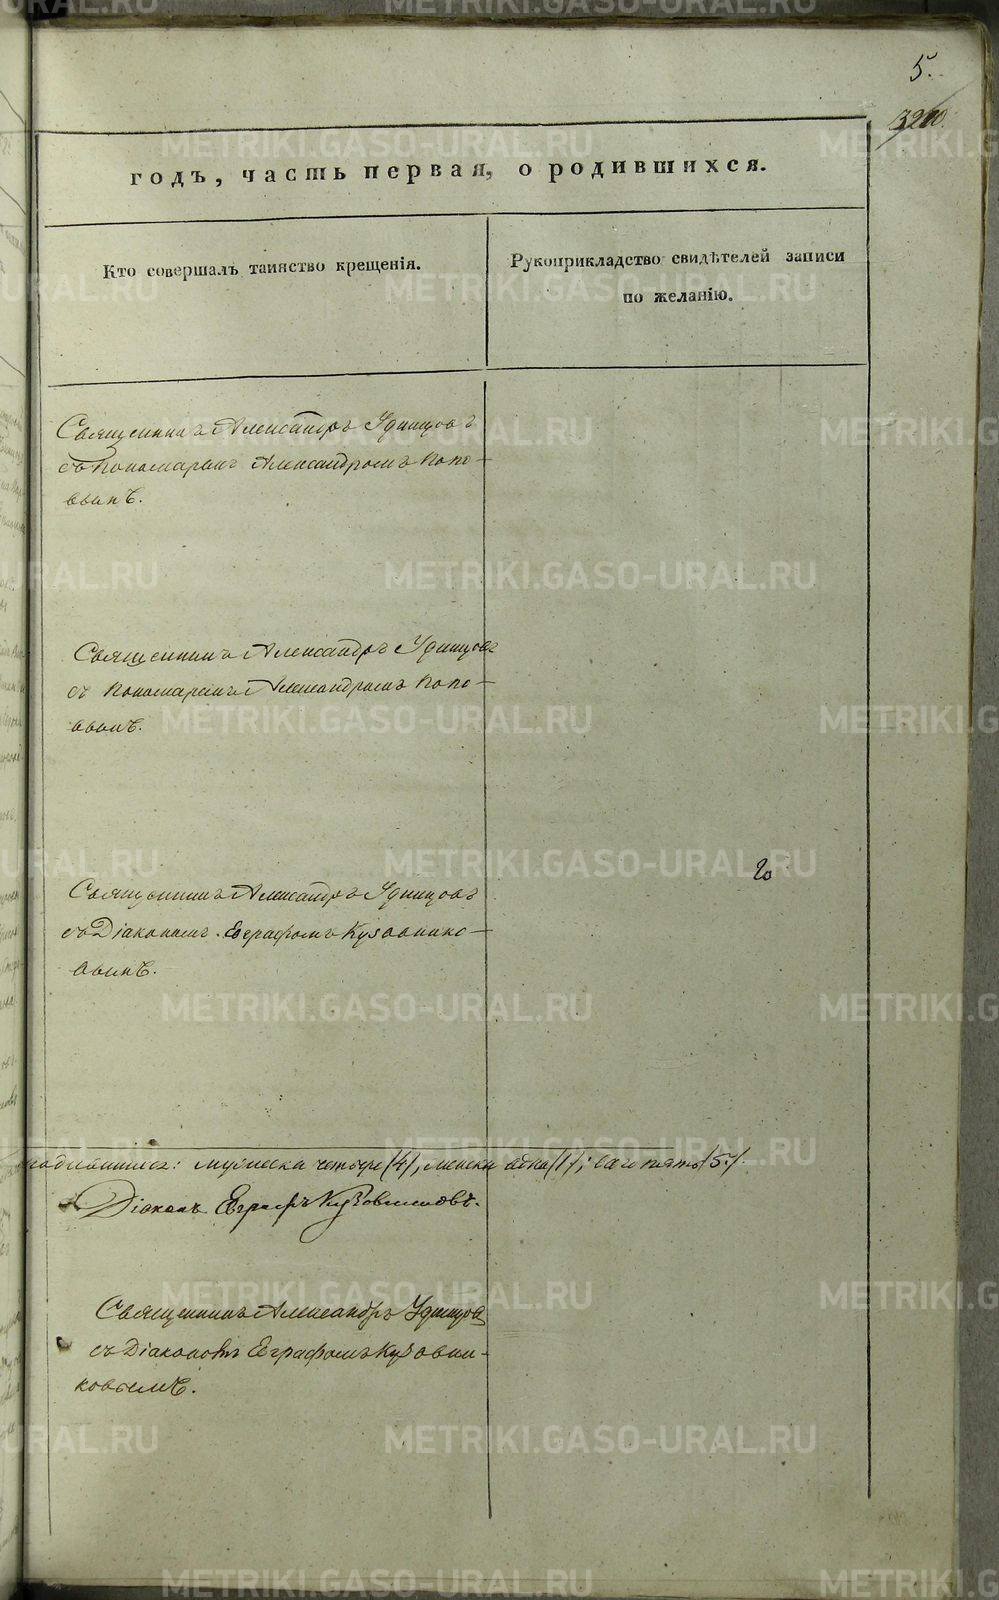 5.
годъ, часть первая, о родившихся.
Кто совершалъ таинство крещенія.
Рукоприкладство свидѣтелей записи
по желанію.
Священникъ Александръ Удинцовъ
съ Пономаремъ Александромъ Попо-
вымъ.
Священникъ Александръ Удинцовъ
съ Пономаремъ Александромъ Попо-
вымъ.
Священникъ Александръ Удинцовъ
съ Діакономъ Евграфомъ Кузовнико-
вымъ.
родившихся: мужеска четыре (4), женска одна (1); всего пять (5).
Діаконъ Евграфъ Кузовниковъ.
Священникъ Александръ Удинцовъ
съ Діакономъ Евграфомъ Кузовни-
ковымъ.
METRIKI.GASO-URAL.RU